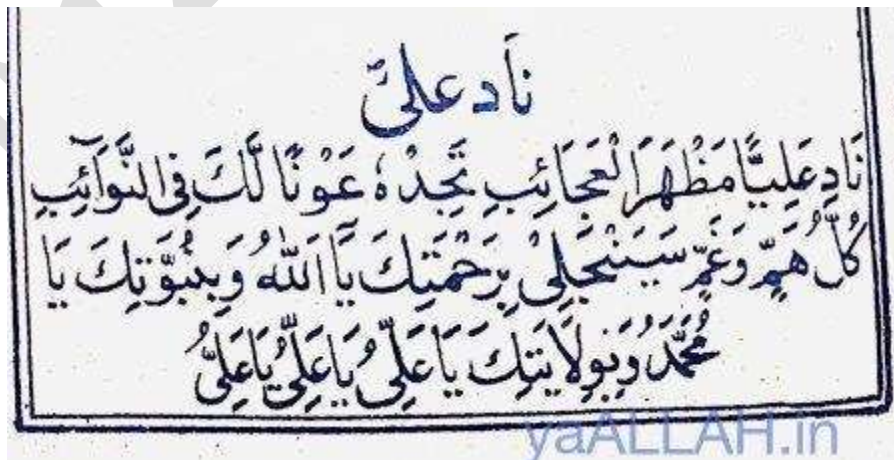 نَاد عَلِیّ
نَادِ عَلِيًّا مَظْهَرَ الْعَجَائِبِ تَجِدْهُ عَوْنًا لَّكَ فِي النَّوَآئِبِ
كُلُّ هَمٍّ وَغَمٍّ سَيَنْجَلِيْ بِرَحْمَتِكَ يَا اَللّٰهُ وَبِنُبُوَّتِكَ يَا
مُحَمَّدُ وَبِوِلَايَتِكَ يَا عَلِيُّ يَا عَلِيُّ يَا عَلِيُّ
yaALLAH.in